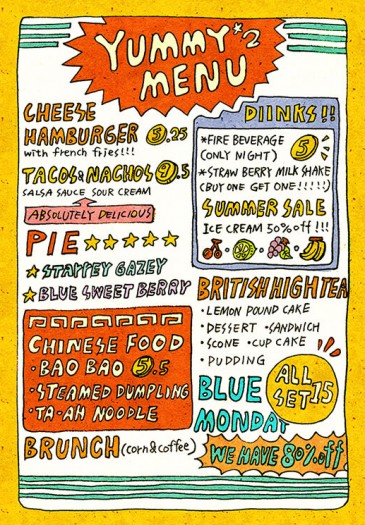 YUMMY*2
MENU
CHEESE
HAMBURGER 5.25
with french fries!!!
TACOS&NACHOS 9.5
SALSA SAUCE SOUR CREAM
ABSOLUTELY DELICIOUS
PIE
STAPPEY GAZEY
BLUE SWEET BERRY
CHINESE FOOD
·BAO BAO 5.5
·STEAMED DUMPLING
·TA-AH NOODLE
BRUNCH (corn&coffee)
DIINKS!!
*FIRE BEVERAGE 5
(ONLY NIGHT)
*STRAW BERRY MILK SHAKE
(BUY ONE GET ONE!!!!!)
SUMMER SALE
ICE CREAM 50% off!!!
BRITISH HIGH TEA
·LEMON POUND CAKE
·DESSERT ·SANDWICH
·SCONE ·CUP CAKE
·PUDDING
ALL
SET 15
BLUE
MONDAY
WE HAVE 80% off